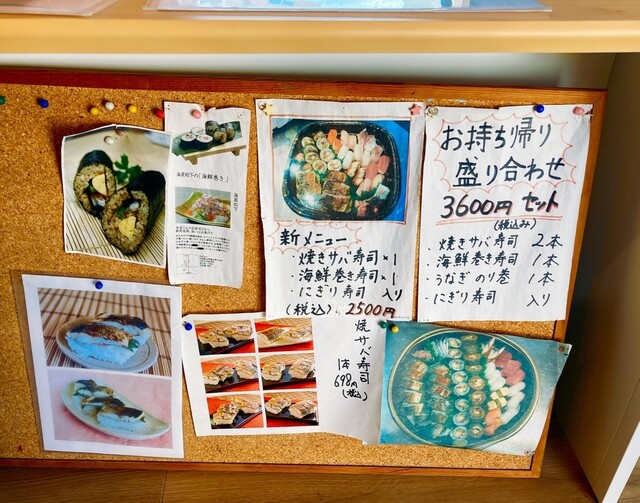 海鮮松下の「海鮮巻き」
海鮮松下
新メニュー
・焼きサバ寿司×1
・海鮮巻き寿司×1
・にぎり寿司 入り
(税込) 2500円
焼サバ寿司
1本
698円
(税込)
お持ち帰り
盛り合わせ
3600円セット
(税込み)
・焼きサバ寿司 2本
・海鮮巻き寿司 1本
・うなぎのり巻 1本
・にぎり寿司 入り